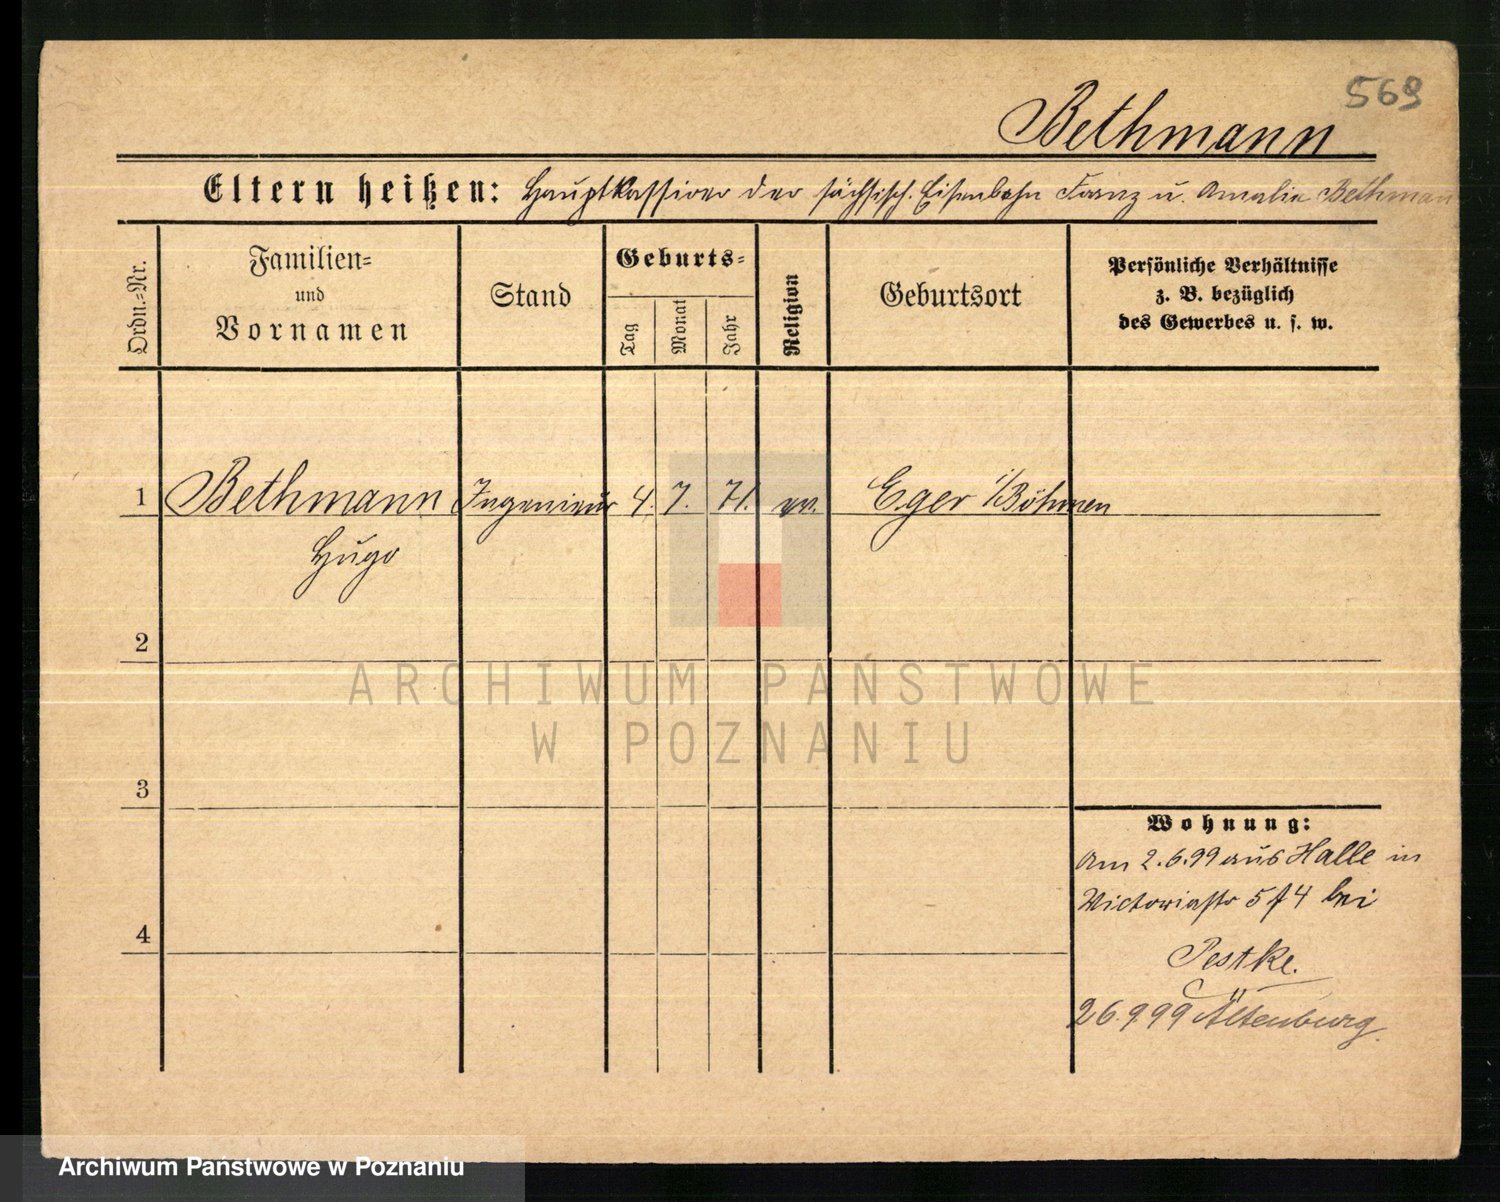 569
Bethmann
Eltern heißen: Hauptkassirer der sächsisch. Eisenbahn Franz u. Amalie Bethmann
Ordn.-Nr.
Familien-
und
Vornamen
Stand
Geburts-
Tag
Monat
Jahr
Religion
Geburtsort
Persönliche Verhältnisse
z. B. bezüglich
des Gewerbes u. s. w.
1 Bethmann Ingenieur 4. 7. 71. ev. Eger i/Böhmen
Hugo
2
3
4
Wohnung:
Am 2.6.99 aus Halle in
Victoriastr 5 4 bei
Pestke.
26.9 99 Altenburg.
ARCHIWUM PAŃSTWOWE
W POZNANIU
Archiwum Państwowe w Poznaniu